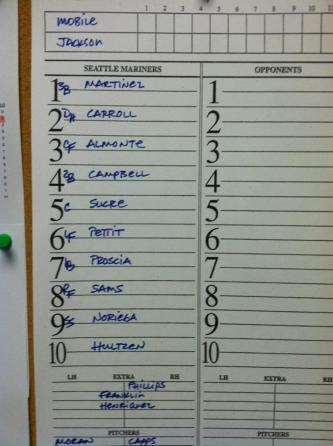 1 2 3 4 5 6 7 8 9 10 11
MOBILE
JACKSON
SEATTLE MARINERS OPPONENTS
1 3B MARTINEZ 1
2 DH CARROLL 2
3 CF ALMONTE 3
4 2B CAMPBELL 4
5 C SUCRE 5
6 LF PETTIT 6
7 1B PROSCIA 7
8 RF SAMS 8
9 SS NORIEGA 9
10 HULTZEN 10
LH EXTRA RH LH EXTRA RH
PHILLIPS
FRANKLIN
HENRIQUEZ
PITCHERS PITCHERS
MORAN CAPPS